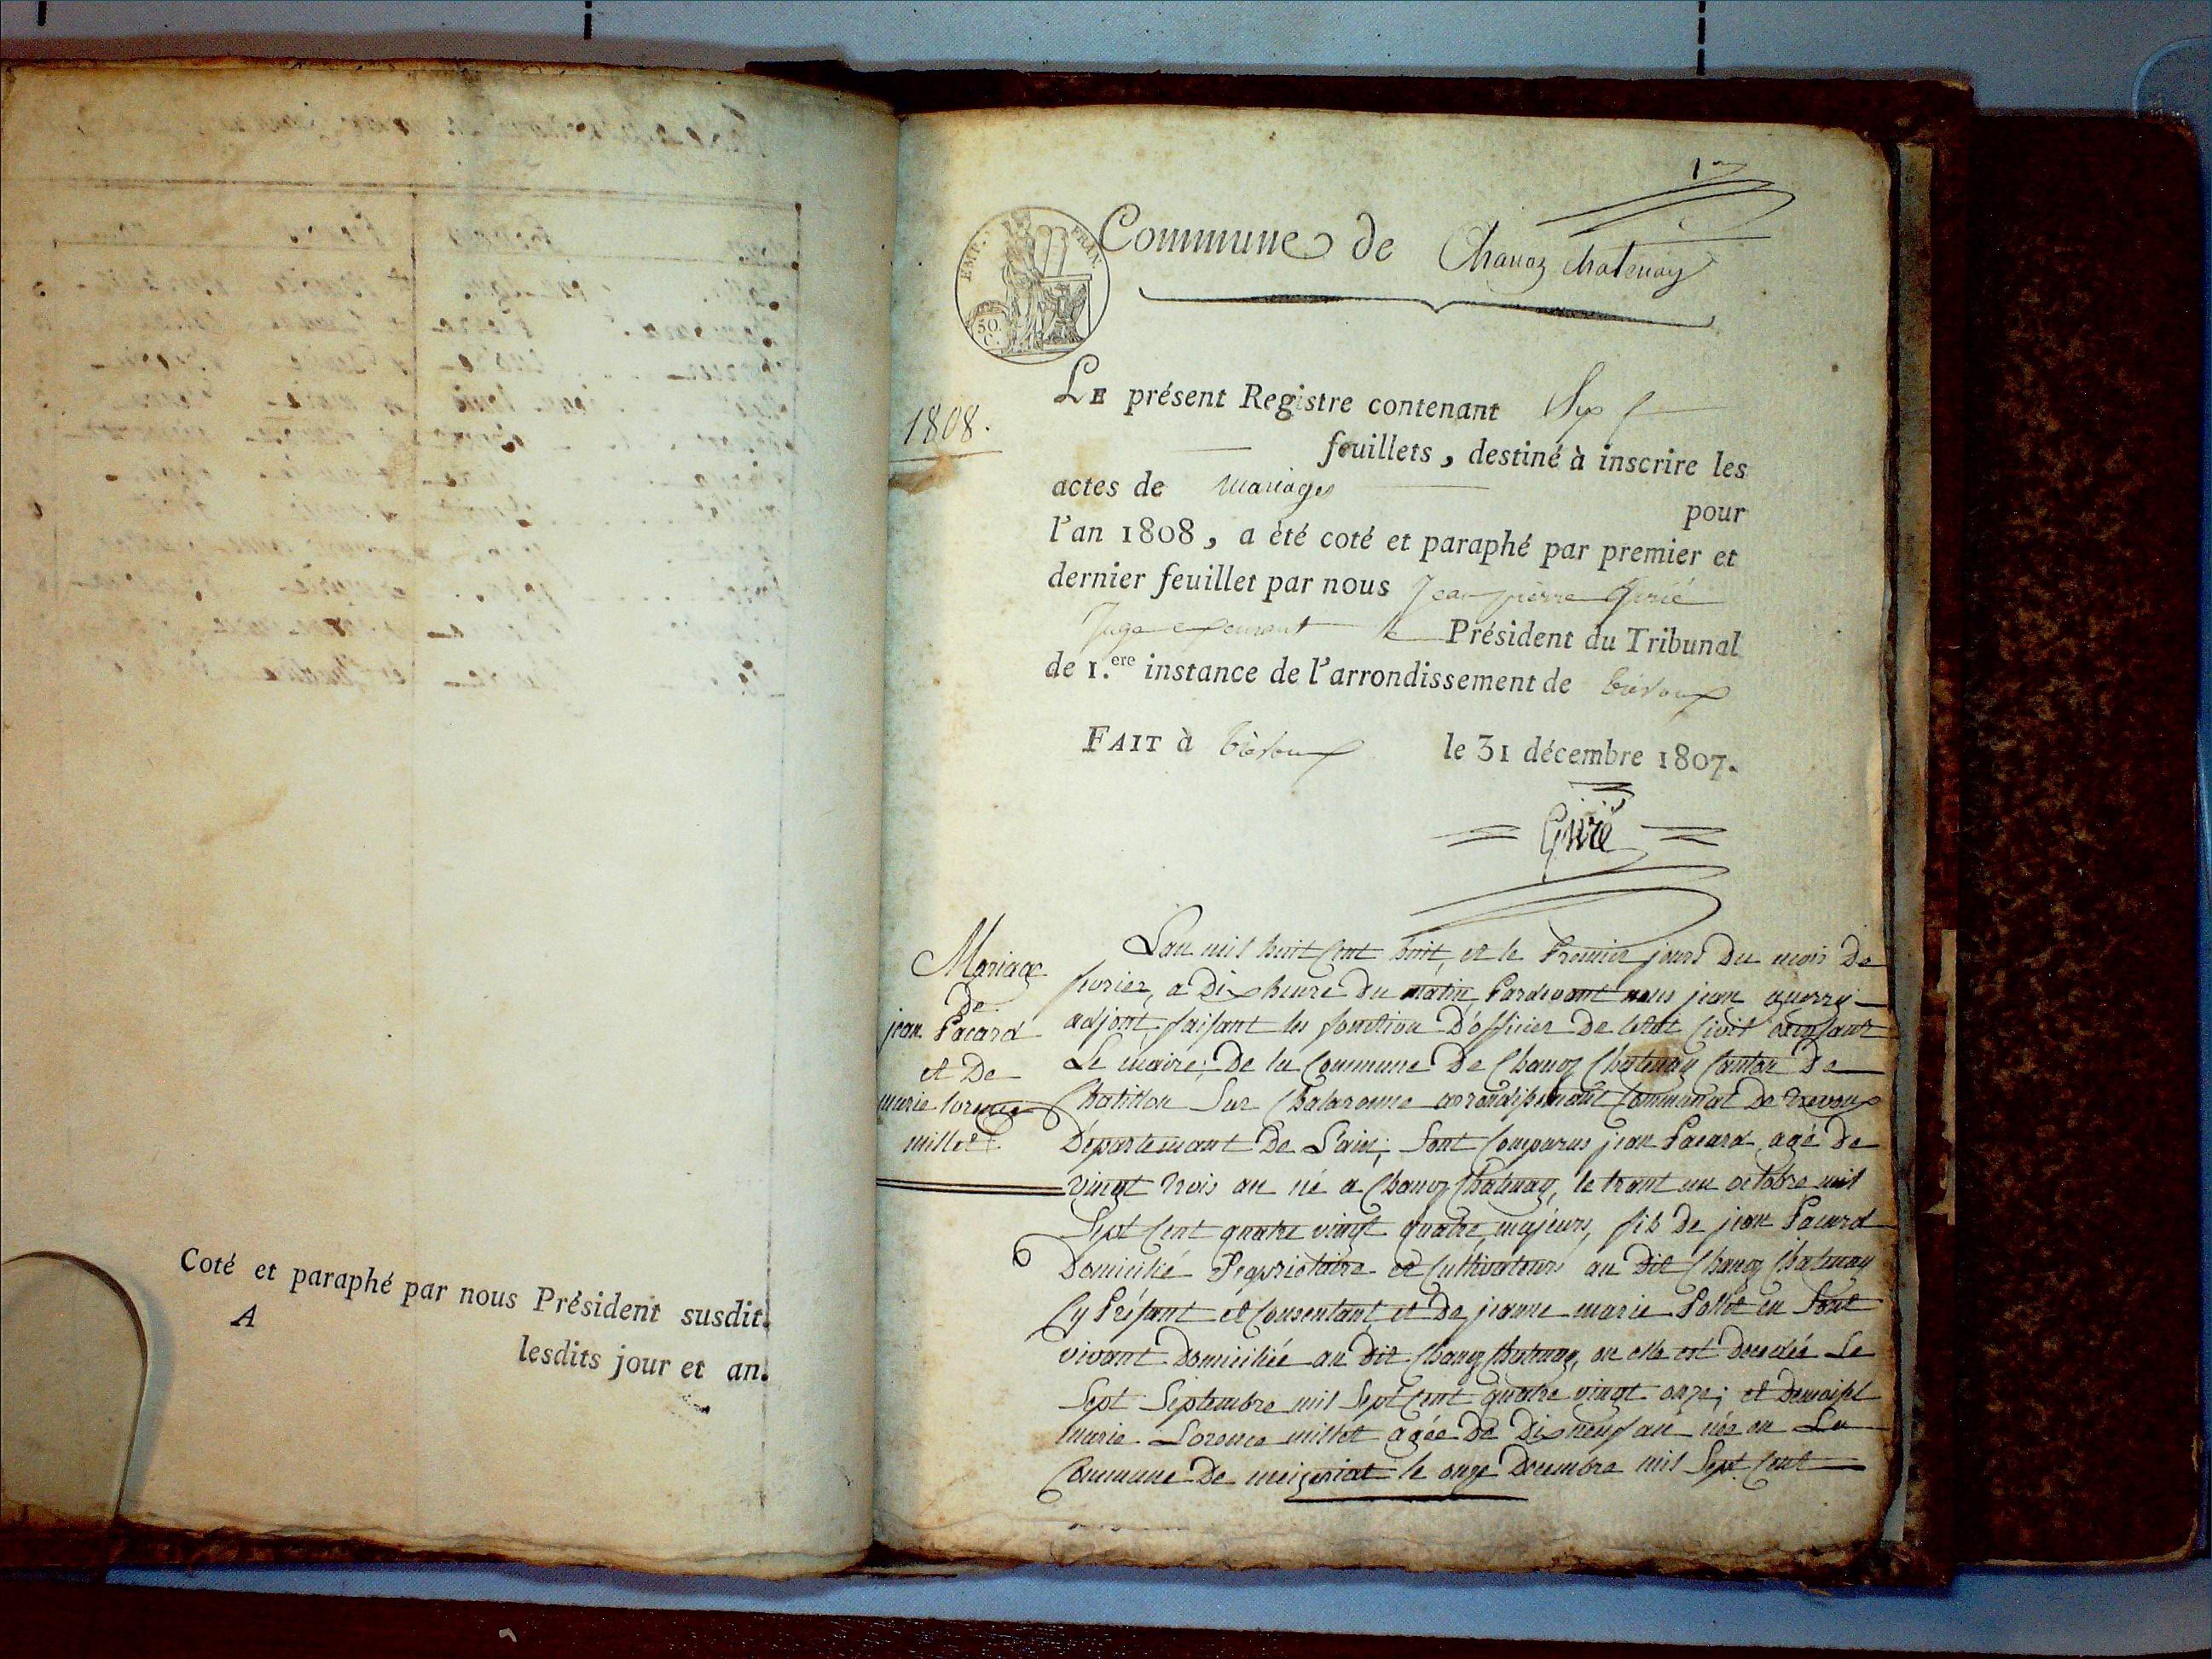 Coté et paraphé par nous Président susdit.
A
lesdits jour et an.
1er
EMP. FRAN.
50.
C.
Commune de Chanoz chatenay
1808.
LE présent Registre contenant Six
feuillets, destiné à inscrire les
actes de mariages
pour
l'an 1808, a été coté et paraphé par premier et
dernier feuillet par nous Jean pierre
Juge Président du Tribunal
de 1.ere instance de l'arrondissement de trévoux
FAIT à trévoux le 31 décembre 1807.
Mariage
De
jean Pacard
et De
marie lorence
millet
Lan mil huit Cent huit, et le Premier jours Du mois De
fevrier, a Dix heure Du matin, Pardevant nous jean guerry
adjont faisant les fonction D'officier De letat Civil
Le maire; De la Commune De Chanoz Chatenay Canton De
Chatillon Sur Chalaronne arrondissemant Communal De trevoux
Départemant De L'ain; Sont Comparus jean Pacard agé De
vingt trois an né a Chanoz Chatenay, le trant un octobre mil
Sept Cent quatre vingt quatre, majeurs, fils De jean Pacard
Domicilié Propriétaire et Cultivateurs au Dit Chanoz Chatenay
Cy Présant et Consentant, et De jeanne marie Pollet en Sont
vivant Domiciliée au Dit Chanoz Chatenay, ou elle est Decedée Le
Sept Septembre mil Sept Cent quatre vingt onze; et Demoisel
marie Lorence millet agée De Dix neuf an née en La
Commune De meizeriat le onze Decembre mil Sept Cent